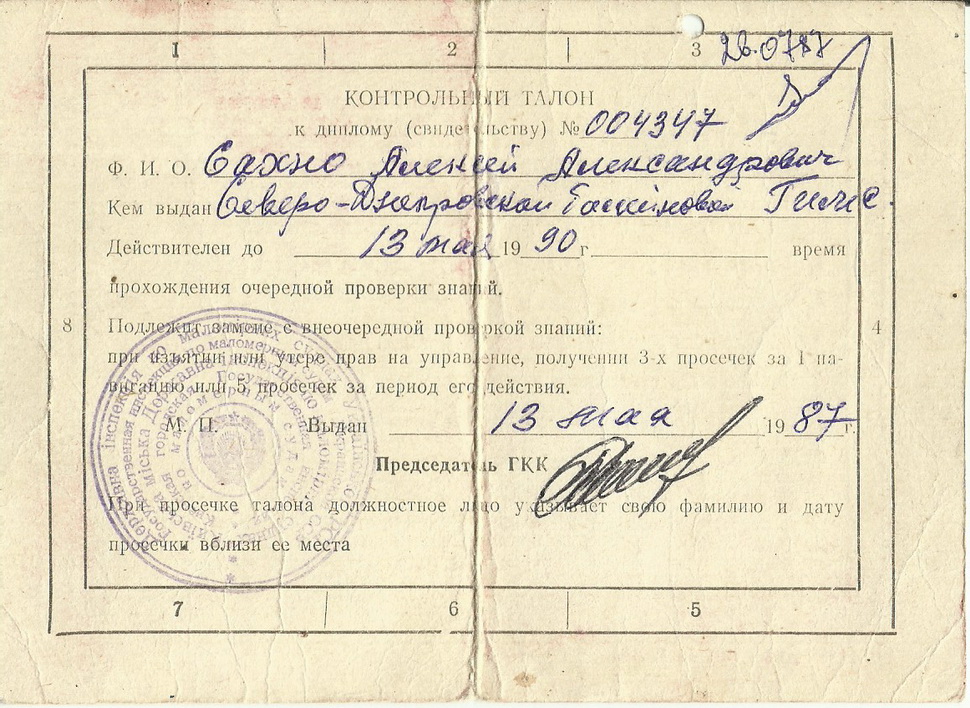 1 2 3 26.0787
КОНТРОЛЬНЫЙ ТАЛОН
к диплому (свидетельству) № 004347
Ф. И. О. Сахно Алексей Александрович
Кем выдан Северо-Днепровской
Действителен до 13 мая 1990 г. время
прохождения очередной проверки знаний.
8 Подлежит замене с внеочередной проверкой знаний: 4
при изъятии или утере прав на управление, получении 3-х просечек за 1 на-
вигацию или 5 просечек за период его действия.
М. П. Выдан 13 мая 1987 г.
Председатель ГКК
При просечке талона должностное лицо указывает свою фамилию и дату
просечки вблизи ее места
7 6 5